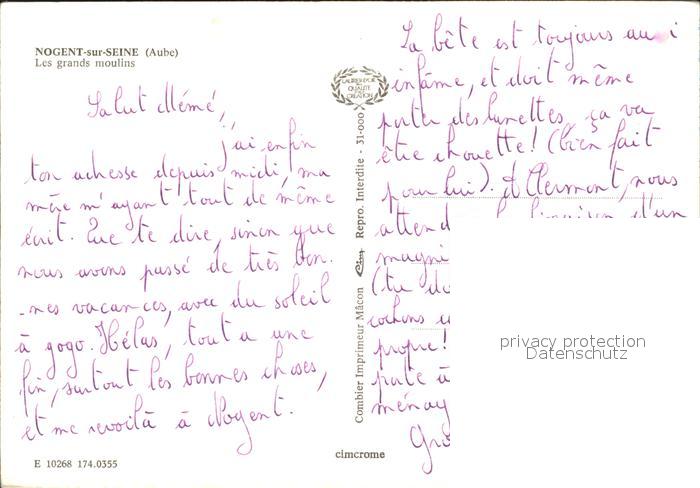 NOGENT-sur-SEINE (Aube)
Les grands moulins
Salut Mémé,
j'ai enfin
ton adresse depuis midi, ma
mère m'ayant tout de même
écrit. Que te dire, sinon que
nous avons passé de très bon-
-nes vacances, avec du soleil
à gogo. Hélas, tout a une
fin, surtout les bonnes choses,
et me revoilà à Nogent.
E 10268 174.0355
LAURIER D'OR
DE
QUALITÉ
ET
CRÉATION
Combier Imprimeur Mâcon Cim Repro. Interdite - 31-000
cimcrome
La bête est toujours aussi
infâme, et doit même
porter des lunettes, ça va
être chouette! (bien fait
pour lui). A Clermont, nous
attend la livraison d'un
magni
(tu do
cochons
propre!
porte à
ménag
Gro
privacy protection
Datenschutz